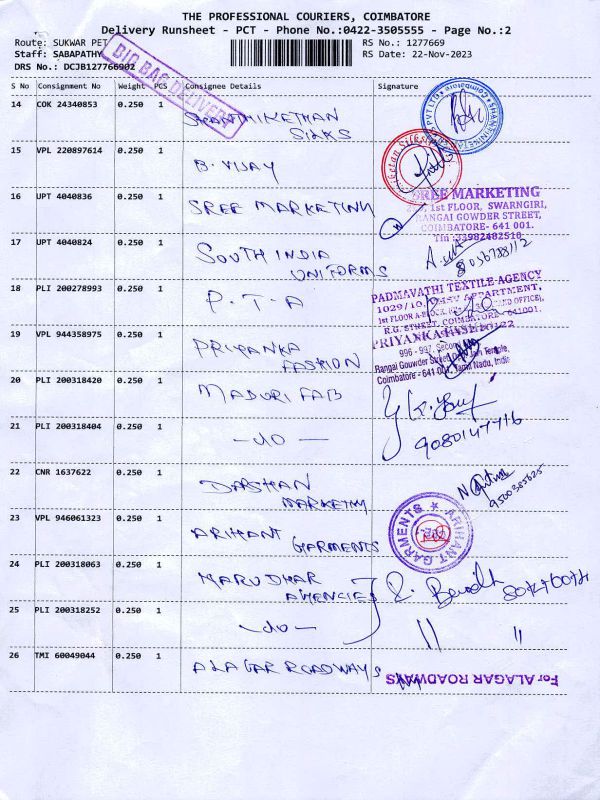 THE PROFESSIONAL COURIERS, COIMBATORE
Delivery Runsheet - PCT - Phone No.:0422-3505555 - Page No.:2
Route: SUKWAR PET
RS No.: 1277669
Staff: SABAPATHY
RS Date: 22-Nov-2023
DRS No.: DCJB127766902
BIG BAG DELIVERY
S No Consignment No Weight PCS Consignee Details Signature
14 COK 24340853 0.250 1 SHANTHIKETHAN
SILKS
15 VPL 220897614 0.250 1 B. VIJAY
16 UPT 4040836 0.250 1 SREE MARKETING
SREE MARKETING
1st FLOOR, SWARNGIRI,
RANGAI GOWDER STREET,
COIMBATORE- 641 001.
17 UPT 4040824 0.250 1 SOUTH INDIA
UNIFORMS
18 PLI 200278993 0.250 1 P.T.A
PADMAVATHI TEXTILE AGENCY
R.G. STREET, COIMBATORE - 641001.
19 VPL 944358975 0.250 1 PRIYANKA
FASHION
PRIYANKA FASHION
996 - 997, Second
Rangai Gouwder Street, Jain Temple,
Coimbatore - 641 001, Tamil Nadu, India
20 PLI 200318420 0.250 1 MADURI FAB
21 PLI 200318404 0.250 1 -do-
9080147716
22 CNR 1637622 0.250 1 DARSHAN
MARKETING
9500385625
23 VPL 946061323 0.250 1 ARIHANT
GARMENTS
ARIHANT GARMENTS
24 PLI 200318063 0.250 1 MARUDHAR
AGENCIES
25 PLI 200318252 0.250 1 -do- 〃 〃
26 TMI 60049044 0.250 1 ALAGAR ROADWAYS
For ALAGAR ROADWAYS